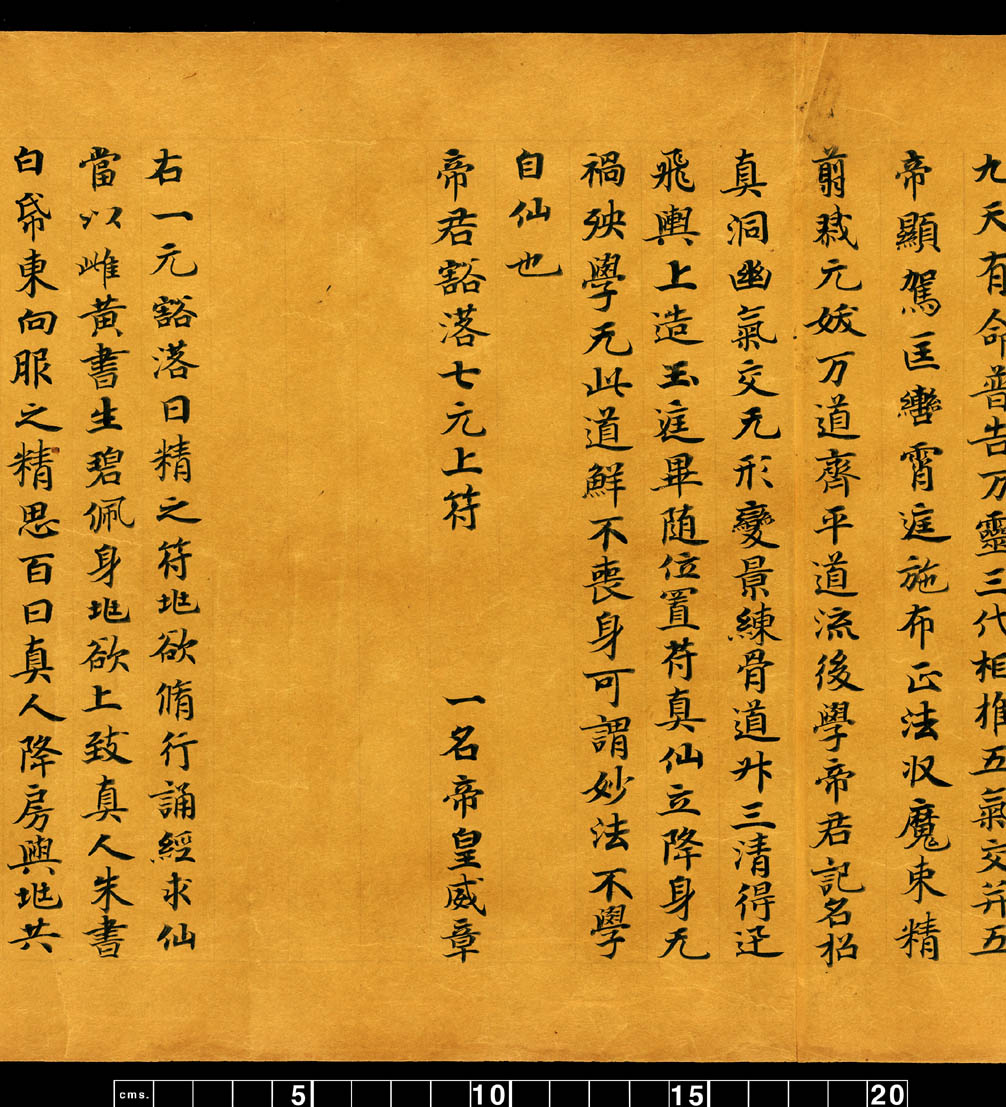 九天有命普告万靈三代相推五氣交并五
帝顯駕匡轡霄庭施布正法收魔束精
翦元妭万道齊平道流後學帝君記名招
真洞幽氣交无形變景練骨道升三清得逕
飛輿上造玉庭畢随位置苻真仙立降身无
禍殃學无此道鮮不喪身可謂妙法不學
自仙也
帝君豁落七元上苻 一名帝皇威章
右一元豁落日精之苻兆欲脩行誦經求仙
當以雌黃書生碧佩身兆欲上致真人朱書
白帋東向服之精思百日真人降房與兆共
cms. 5 10 15 20